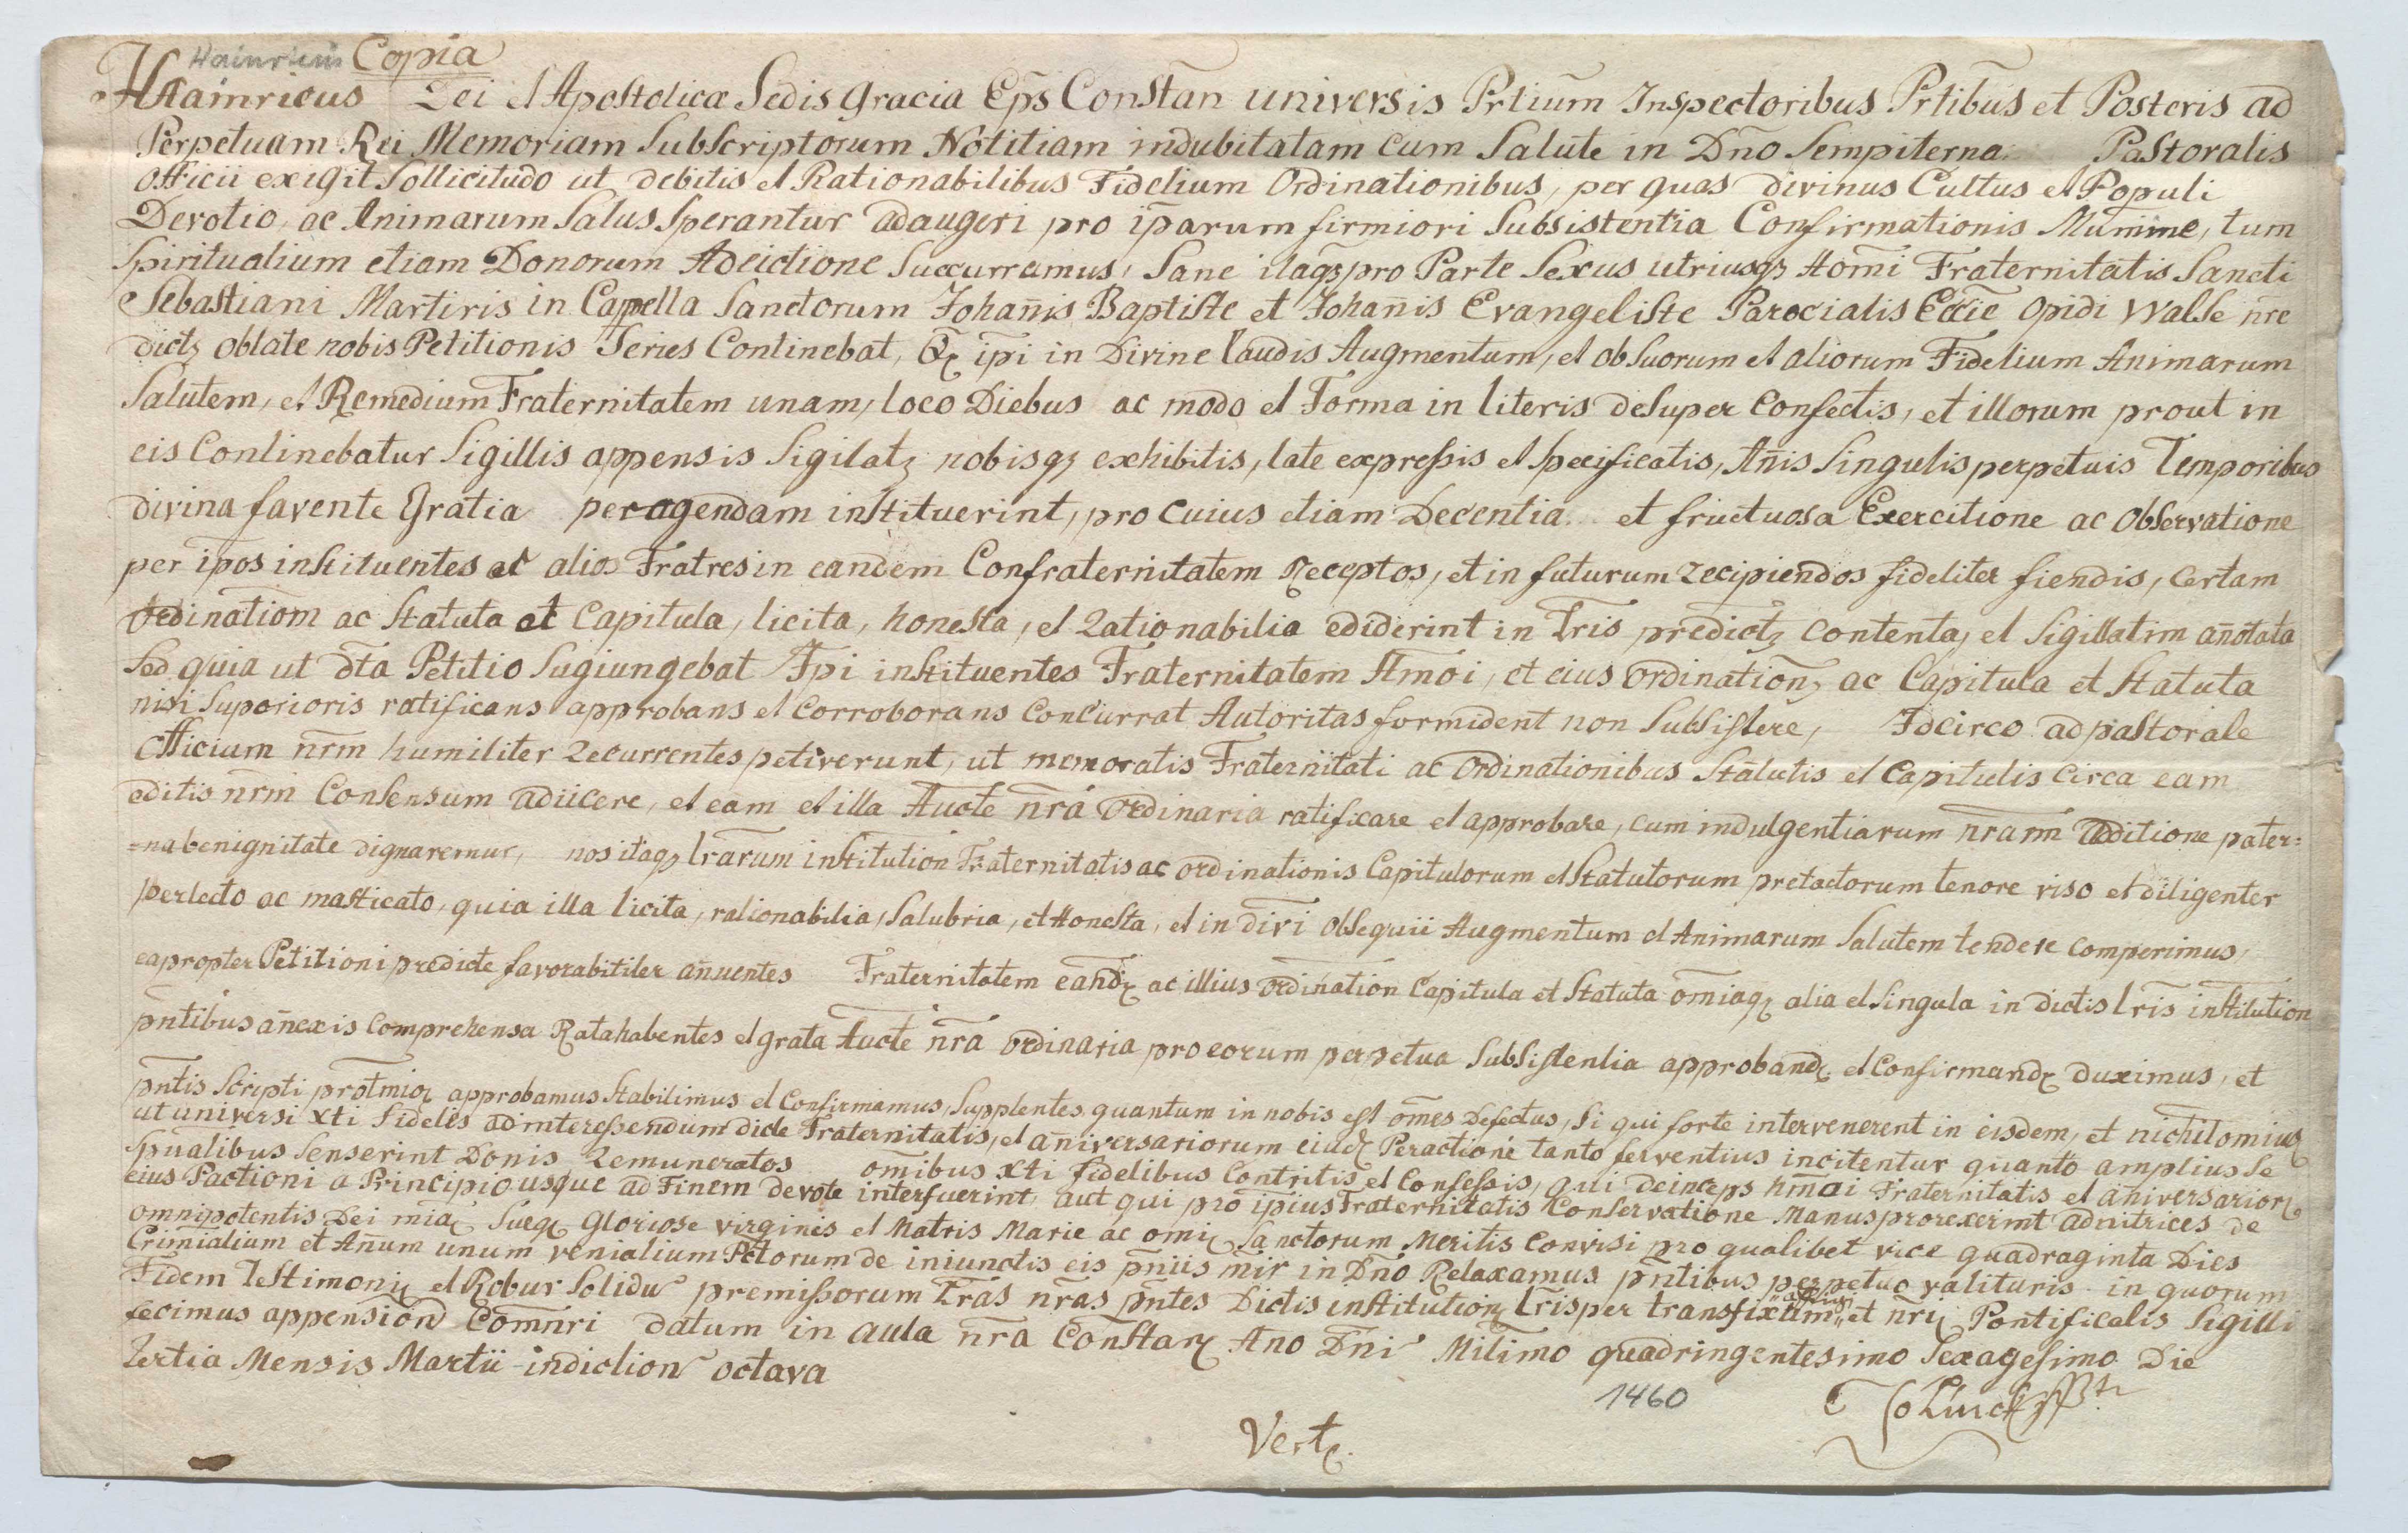 Hainricus Copia
Hainricus Dei et Apostolicæ Sedis Gracia Ep̄s Constan̄ universis Prt̄ium Inspectoribus Prt̄ibus et Posteris ad
Perpetuam Rei Memoriam Subscriptorum Notitiam indubitatam cum Salute in Dn̄o Sempiterna. Pastoralis
Officii exigit Sollicitudo ut debitis et Rationabilibus Fidelium Ordinationibus, per quas divinus Cultus et Populi
Devotio, ac Animarum Salus Sperantur adaugeri pro ip̄arum firmiori Subsistentia Confirmationis Munime, tum
Spiritualium etiam Donorum Adeictione Succurramus, Sane itaqꝫ pro Parte Sexus utriusqꝫ Hom̄i Fraternitatis Sancti
Sebastiani Martiris in Cappella Sanctorum Johan̄is Baptiste et Johan̄is Evangeliste Parocialis Ecc̄ie opidi Walse nr̄e
dictꝫ oblate nobis Petitionis Series Continebat, Qꝫ ip̄i in Divine Laudis Augmentum, et ob Suorum et aliorum Fidelium Animarum
Salutem, et Remedium Fraternitatem unam, loco Diebus ac modo et Forma in literis desuper Confectis, et illorum prout in
eis Continebatur Sigillis appensis Sigilatꝫ nobisqꝫ exhibitis, late expressis et Specificatis, An̄is Singulis perpetuis Temporibus
divina favente Gratia peragendam instituerint, pro cuius etiam Decentia et fructuosa Exercitione ac Observatione
per ip̄os instituentes et alios Fratres in eandem Confraternitatem Receptos, et in futurum recipiendos fideliter fiendis, Certam
Ordinatiom̄ ac Statuta et Capitula, licita, honesta, et Rationabilia ediderint in Lr̄is predictꝫ Contenta, et Sigillatim an̄otata
Sed quia ut dt̄a Petitio Sugiungebat Ipi instituentes Fraternitatem Hmoi, et eius Ordination̄ꝫ ac Capitula et Statuta
nisi Superioris ratificans approbans et Corroborans Concurrat Autoritas formident non Subsistere, Idcirco ad pastorale
Officium nr̄m humiliter Recurrentes petiverunt, ut memoratis Fraternitati ac Ordinationibus Statutis et Capitulis Circa eam
editis nr̄m Consensum adiicere, et eam et illa Aucte nr̄a Ordinaria ratificare et approbare, cum indulgentiarum nr̄arm̄ additione pater=
=na benignitate dignaremur, nos itaqꝫ lr̄arum institution̄ Fraternitatis ac Ordinationis Capitulorum et Statutorum pretactorum tenore viso et diligenter
perlecto ac masticato, quia illa licita, rationabilia, Salubria, et Honesta, et in divi Obsequii Augmentum et Animarum Salutem tendere comperimus,
eapropter Petitioni predicte favorabiliter an̄uentes Fraternitatem eandꝫ ac illius Ordination̄ Capitula et Statuta om̄iaqꝫ alia et Singula in dictis Lr̄is institution̄
pn̄tibus an̄exis Comprehensa Rata habentes et grata Aucte nr̄a Ordinaria pro eorum perpetua Subsistentia approbandꝫ et Confirmandꝫ duximus, et
pn̄tis Scripti prot̄mioꝫ approbamus Stabilimus et Confirmamus, Supplentes quantum in nobis est om̄es Defectus, Si qui forte intervenerent in eisdem, et nichilomiꝫ
ut universi xti Fideles ad interessendum dicte Fraternitatis, et an̄iversariorum eiudꝫ Peractione tanto ferventius incitentur quanto amplius Se
Spūalibus Senserint Donis Remuneratos om̄ibus xti fidelibus Contritis et Confessis, qui deinceps hm̄oi Fraternitatis et an̄iversarior̄
eius Pactioni a Principio usque ad Finem devote interfuerint, aut qui pro ip̄ius Fraternitatis Conservatione Manus prorexerint adnitrices de
omnipotentis Dei mīaꝫ Sueqꝫ Gloriose virginis et Matris Marie ac om̄iꝫ Sanctorum Meritis Convisi pro qualibet vice quadraginta Dies
Crimialium et An̄um unum venialium Pc̄torum de iniunctis eis pn̄iis mir̄ in Dn̄o Relaxamus pn̄tibus perpetuo valituris. in quorum
Fidem Testimoniꝫ et Robur Solidu premissorum Lr̄as nr̄as pn̄tes Dictis institutionꝫ Lr̄is per transfixum et nr̄iꝫ Pontificalis Sigilli
fecimus appension̄ Com̄nri datum in aula nr̄a Constanꝫ An̄o Dn̄i Mil̄imo quadringentesimo Sexagesimo Die
Tertia Mensis Martii indiction̄ octava
1460
Verte.